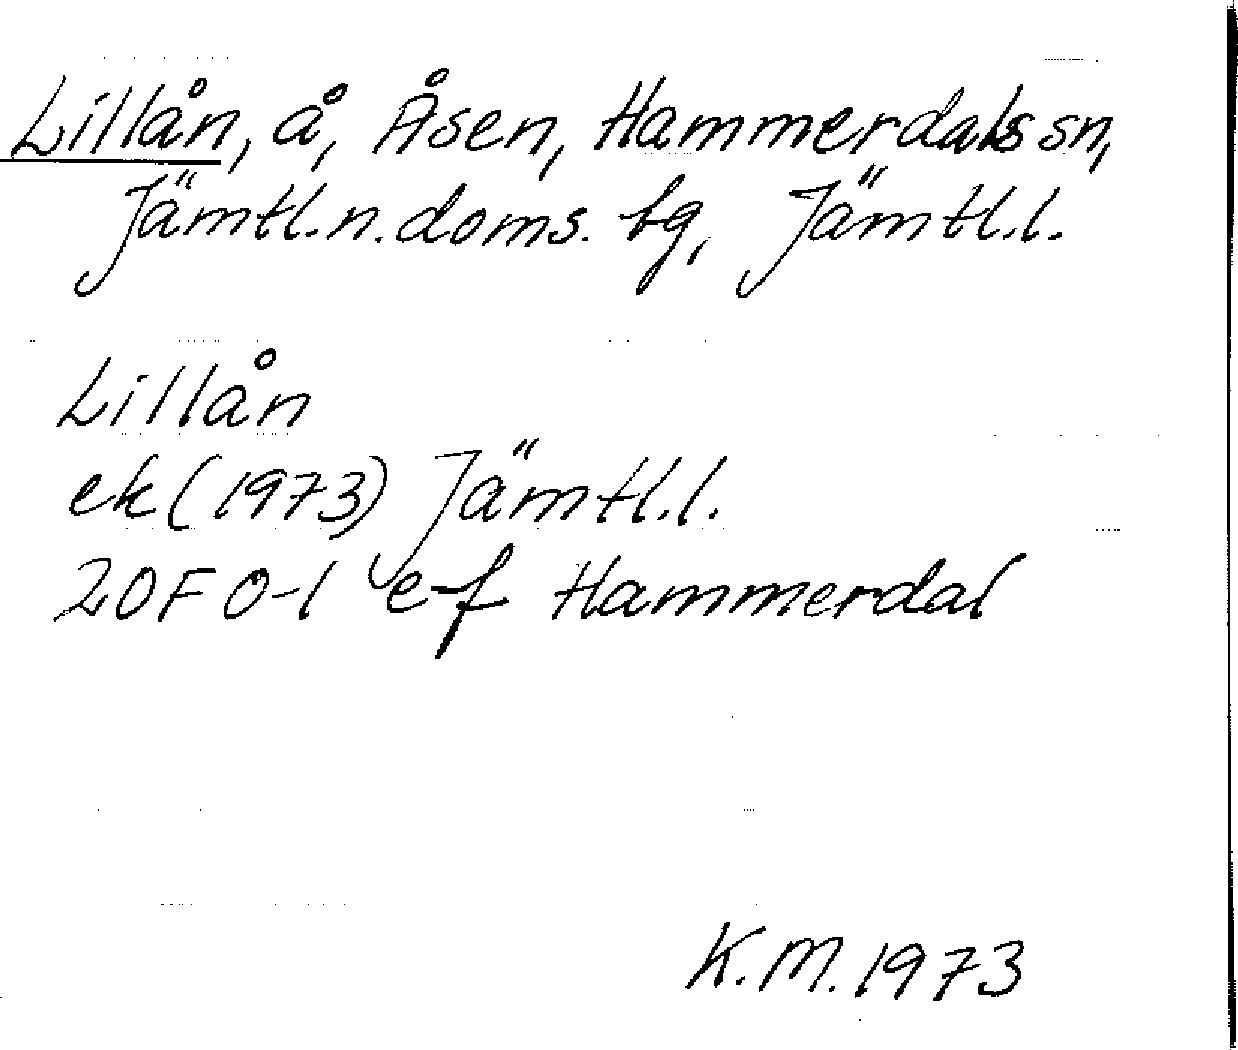 Lillån, å, Åsen, Hammerdals sn,
Jämtl.n.doms. tg, Jämtl.l.
Lillån
ek (1973) Jämtl.l.
20F 0-1 e-f Hammerdal
K.M. 1973